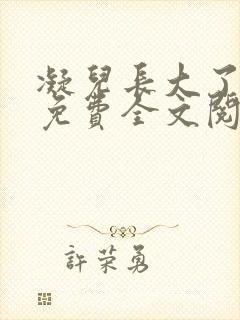 凝兒長大了
免費全文閱
許荣勇